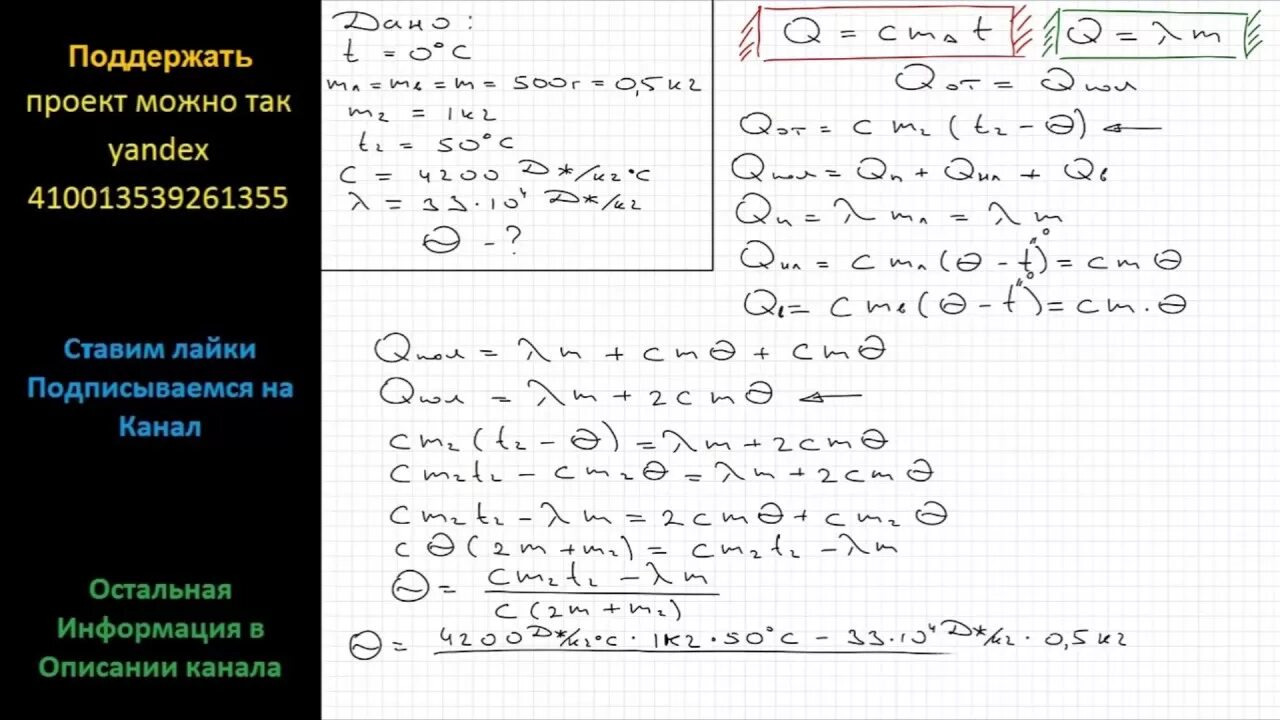 Поддержать
проект можно так
yandex
410013539261355
Ставим лайки
Подписываемся на
Канал
Остальная
Информация в
Описании канала
Дано:
t = 0°C
mл = mв = m = 500г = 0,5кг
m₂ = 1кг
t₂ = 50°C
c = 4200 Дж/кг°C
λ = 33·10⁴ Дж/кг
Θ - ?
Q = cmΔt
Q = λm
Qот = Qпол
Qот = cm₂(t₂ - Θ) ←
Qпол = Qп + Qнл + Qв
Qп = λmл = λm
Qнл = cmл(Θ - t"⁰) = cmΘ
Qв = cmв(Θ - t"⁰) = cm·Θ
Qпол = λm + cmΘ + cmΘ
Qпол = λm + 2cmΘ ←
cm₂(t₂ - Θ) = λm + 2cmΘ
cm₂t₂ - cm₂Θ = λm + 2cmΘ
cm₂t₂ - λm = 2cmΘ + cm₂Θ
cΘ(2m + m₂) = cm₂t₂ - λm
Θ = cm₂t₂ - λm
c(2m + m₂)
Θ = 4200 Дж/кг°C · 1кг · 50°C - 33·10⁴ Дж/кг · 0,5кг